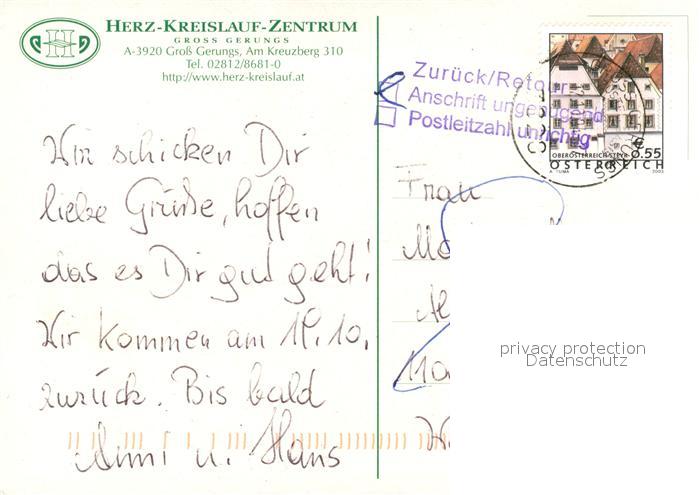 HERZ-KREISLAUF-ZENTRUM
GROSS GERUNGS
A-3920 Groß Gerungs, Am Kreuzberg 310
Tel. 02812/8681-0
http://www.herz-kreislauf.at
Wir schicken Dir
liebe Grüße, hoffen
das es Dir gut geht!
Wir kommen am 19.10.
zurück. Bis bald
Anni u. Hans
Zurück/Retour
Anschrift ungenügend
Postleitzahl unrichtig
OBERÖSTERREICH-STEYR
0.55
ÖSTERREICH
A. TUMA 2003
Frau
privacy protection
Datenschutz